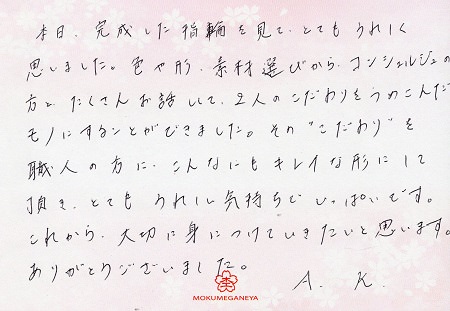 本日、完成した指輪を見て、とてもうれしく
思いました。色や形、素材選びから、コンシェルジュの
方と、たくさんお話しして、2人のこだわりをつめこんだ
モノにすることができました。その"こだわり"を
職人の方に、こんなにもキレイな形にして
頂き、とてもうれしい気持ちでいっぱいです。
これから、大切に身につけていきたいと思います。
ありがとうございました。
A. K.
MOKUMEGANEYA